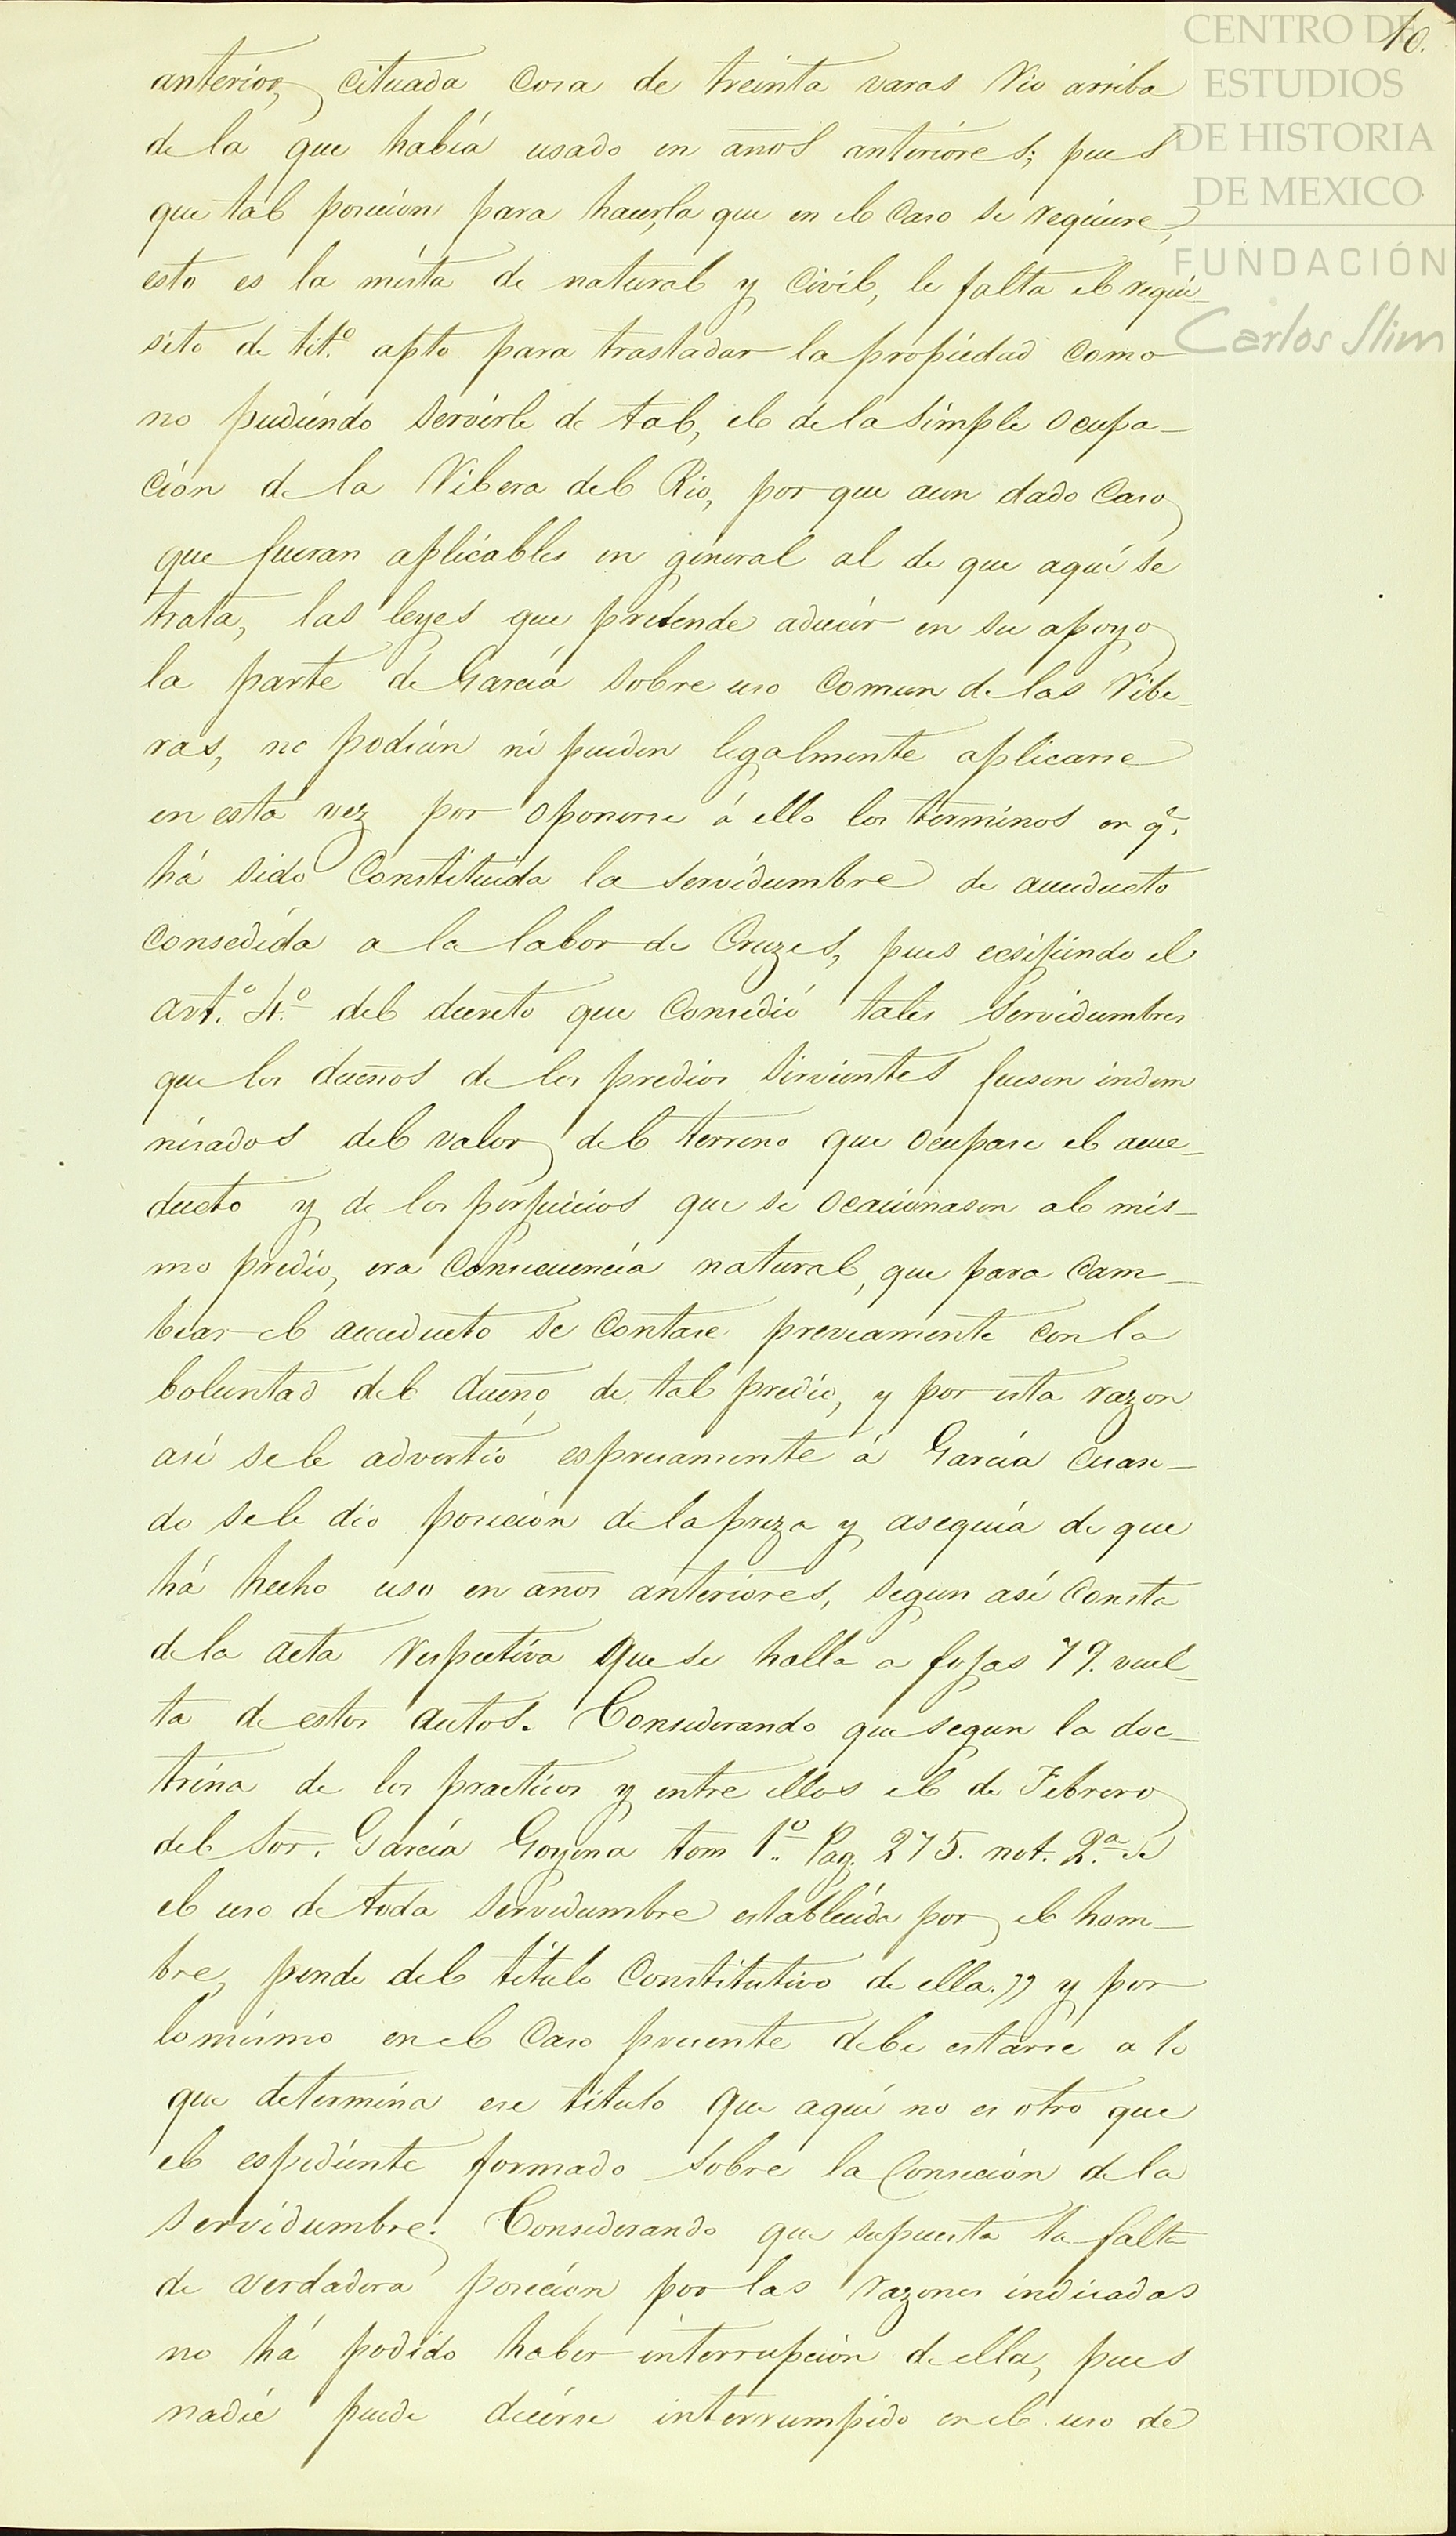 10.
CENTRO DE
ESTUDIOS
DE HISTORIA
DE MEXICO
FUNDACIÓN
Carlos Slim
anterior, cituada cosa de treinta varas Rio arriba
de la que había usado en años anteriores; pues
que tal posicion para hacerla que en el caso se requiere,
esto es la mista de natural y civil, le falta el requi-
sito de tit.º apto para trasladar la propiedad como
no pudiendo servirle de tal, el de la simple ocupa-
ción de la Ribera del Rio, por que aun dado caso
que fueran aplicables en general al de que aquí se
trata, las leyes que pretende aducir en su apoyo
la parte de García sobre uso comun de las Ribe-
ras, no podían ni pueden legalmente aplicarse
en esta vez por oponerse á ello los términos en q.
há sido Constituida la servidumbre de acueducto
consedida a la labor de Cruzes, pues ecsijiendo el
art.º 4.º del decreto que Consedió tales Servidumbres
que los dueños de los predios sirvientes fuesen indem
nisados del valor del terreno que ocupase el acue-
ducto y de los perjuicios que se ocacionasen al mis-
mo predio, era Consecuencia natural, que para cam-
biar el acueducto se contase previamente con la
boluntad del dueño de tal predio, y por esta razon
así se le advertió espresamente á García cuan-
do se le dio posición de la preza y asequia de que
há hecho uso en años anteriores, segun así consta
de la acta respectiva que se halla a fojas 79. vuel-
ta de estos autos. Considerando que segun la doc-
trina de los practicos y entre ellos el de Febrero
del Sor. García Goyena tom 1.º Pag. 275. not. 2.ª
el uso de toda servidumbre establecida por el hom-
bre, pende del título Constitutivo de ella.” y por
lo mismo en el caso presente debe estarse a lo
que determina ese título que aquí no es otro que
el espediente formado sobre la Conseción de la
servidumbre. Considerando que supuesta la falta
de verdadera posición por las razones indicadas
no há podido haber interrupción de ella, pues
nadie puede decirse interrumpido en el uso de